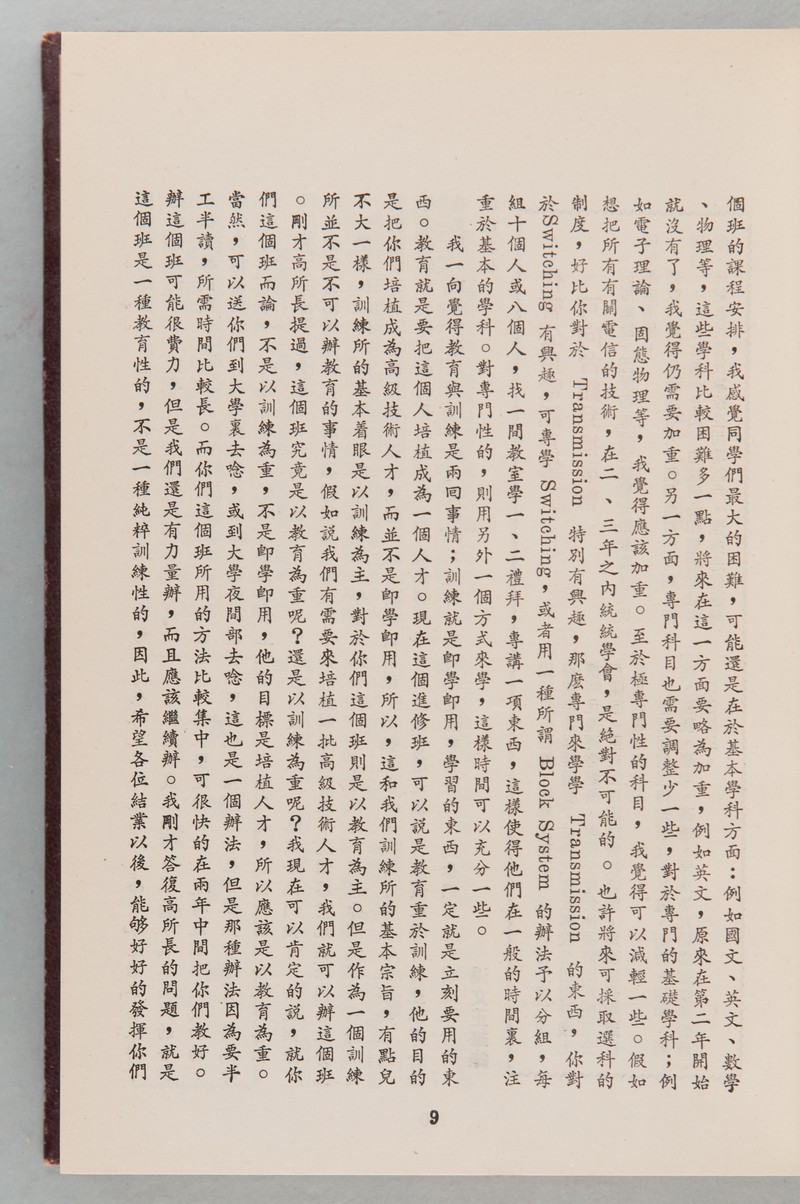 個班的課程安排，我感覺同學們最大的困難，可能還是在於基本學科方面：例如國文、英文、數學
、物理等，這些學科比較困難多一點，將來在這一方面要略為加重，例如英文，原來在第二年開始
就沒有了，我覺得仍需要加重。另一方面，專門科目也需要調整少一些，對於專門的基礎學科；例
如電子理論、固態物理等，我覺得應該加重。至於極專門性的科目，我覺得可以減輕一些。假如
想把所有有關電信的技術，在二、三年之內統統學會，是絕對不可能的。也許將來可採取選科的
制度，好比你對於 Transmission 特別有興趣，那麼專門來學學 Transmission 的東西，你對
於Switching 有興趣，可專學 Switching，或者用一種所謂 Block System 的辦法予以分組，每
組十個人或八個人，找一間教室學一、二禮拜，專講一項東西，這樣使得他們在一般的時間裏，注
重於基本的學科。對專門性的，則用另外一個方式來學，這樣時間可以充分一些。
我一向覺得教育與訓練是兩回事情；訓練就是即學即用，學習的東西，一定就是立刻要用的東
西。教育就是要把這個人培植成為一個人才。現在這個進修班，可以說是教育重於訓練，他的目的
是把你們培植成為高級技術人才，而並不是即學即用，所以，這和我們訓練所的基本宗旨，有點兒
不大一樣，訓練所的基本着眼是以訓練為主，對於你們這個班則是以教育為主。但是作為一個訓練
所並不是不可以辦教育的事情，假如說我們有需要來培植一批高級技術人才，我們就可以辦這個班
。剛才高所長提過，這個班究竟是以教育為重呢？還是以訓練為重呢？我現在可以肯定的說，就你
們這個班而論，不是以訓練為重，不是即學即用，他的目標是培植人才，所以應該是以教育為重。
當然，可以送你們到大學裏去唸，或到大學夜間部去唸，這也是一個辦法，但是那種辦法因為要半
工半讀，所需時間比較長。而你們這個班所用的方法比較集中，可很快的在兩年中間把你們教好。
辦這個班可能很費力，但是我們還是有力量辦，而且應該繼續辦。我剛才答復高所長的問題，就是
這個班是一種教育性的，不是一種純粹訓練性的，因此，希望各位結業以後，能够好好的發揮你們
9